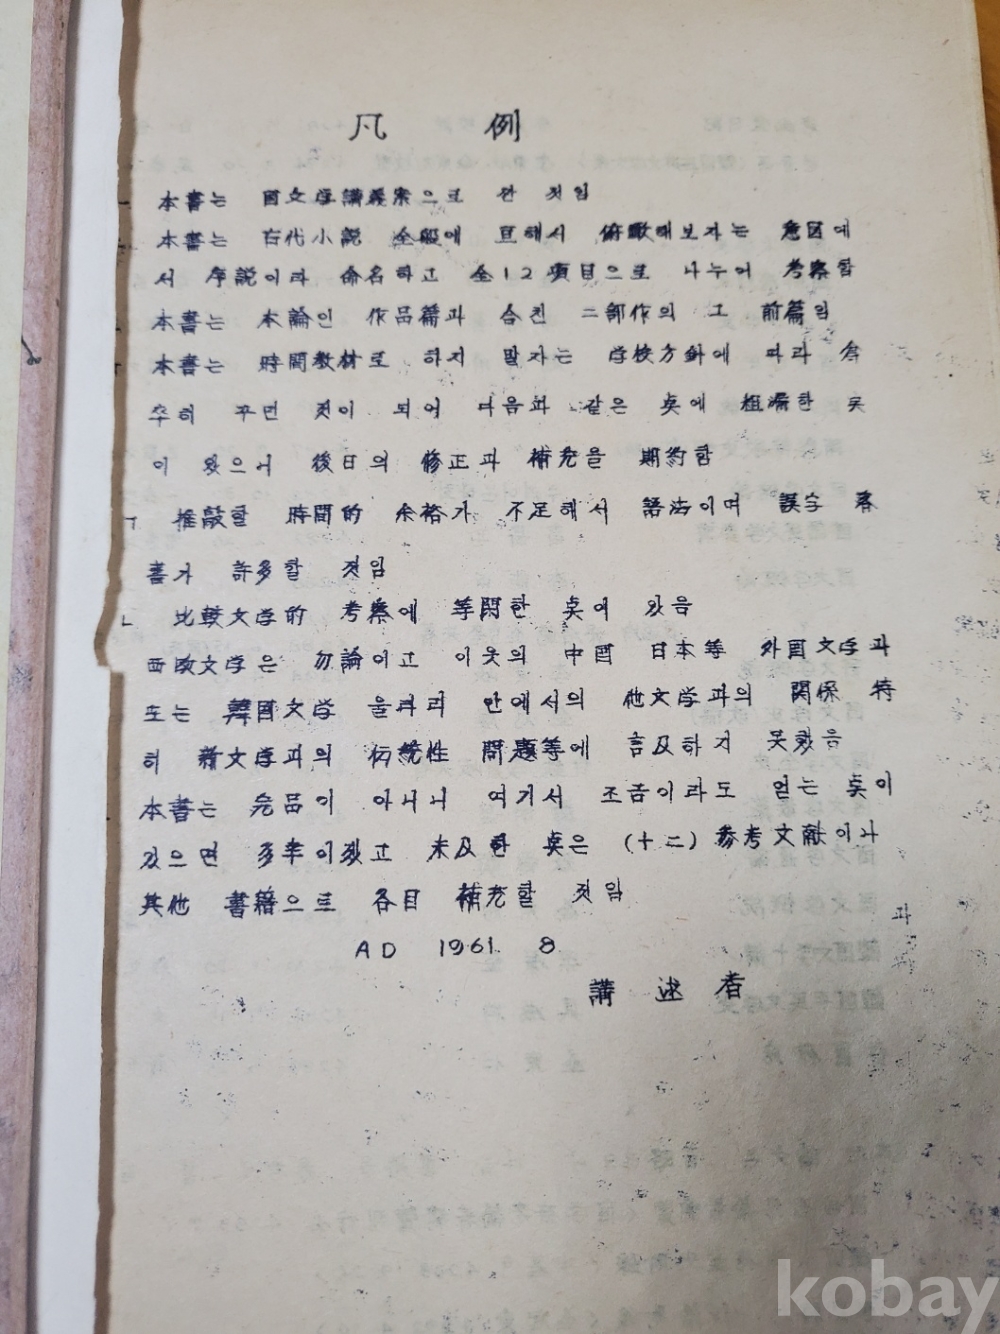 凡 例
一 本書는 国文学講義案으로 한 것임
本書는 古代小説 全般에 亘해서 俯瞰해보자는 意図에
서 序説이라 命名하고 全12項目으로 나누어 考察함
本書는 本論인 作品篇과 合친 二部作의 그 前篇임
本書는 時間教材로 하지 말자는 学校方針에 따라 倉
卒히 꾸민 것이 되어 다음과 같은 点에 粗漏한 点
이 있으니 後日의 修正과 補充을 期約함
ㄱ 推敲할 時間的 余裕가 不足해서 語法이며 誤字 落
書가 許多할 것임
ㄴ 比較文学的 考察에 等閑한 点이 있음
西欧文学은 勿論이고 이웃의 中国 日本等 外国文学과
또는 韓国文学 울타리 안에서의 他文学과의 関係 特
히 新文学과의 伝統性 問題等에 言及하지 못했음
本書는 完品이 아니니 여기서 조금이라도 얻는 点이
있으면 多幸이겠고 未及한 点은 (十二) 参考文献이나
其他 書籍으로 各自 補充할 것임
과
AD 1961. 8
講 述 者
kobay